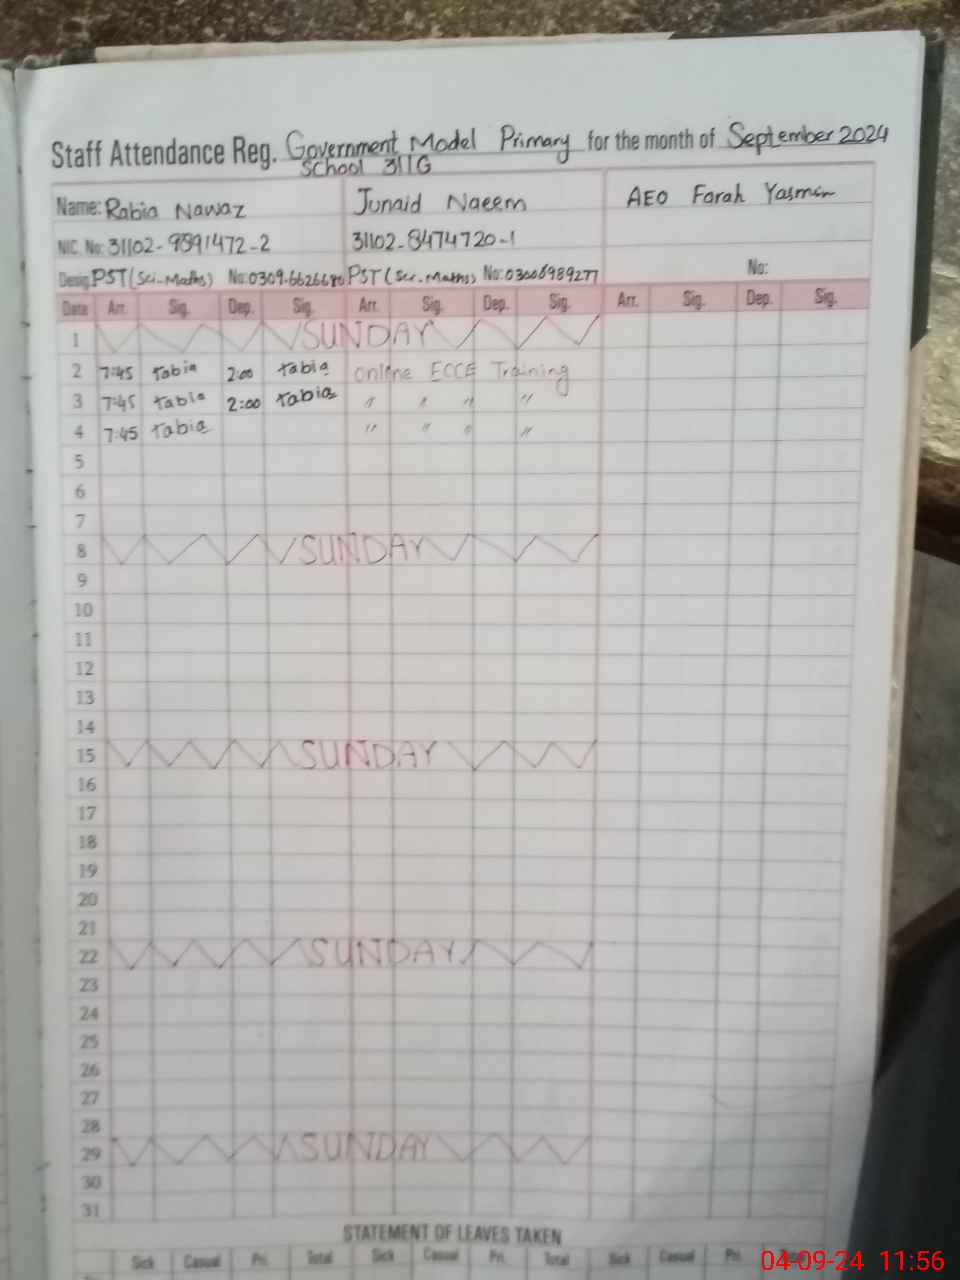 Staff Attendance Reg. Government Model Primary for the month of September 2024
School 311G
Name: Rabia Nawaz Junaid Naeem AEO Farah Yasmin
NIC. No: 31102-9391472-2 31102-8474720-1
Desig. PST (Sci-Maths) No: 0309.6626680 PST (Sci-Maths) No: 03006989277 No:
Date Arr. Sig. Dep. Sig. Arr. Sig. Dep. Sig. Arr. Sig. Dep. Sig.
1 SUNDAY
2 7:45 rabia 2:00 rabia Online ECCE Training
3 7:45 rabia 2:00 rabia " " " "
4 7:45 rabia " " " "
5
6
7
8 SUNDAY
9
10
11
12
13
14
15 SUNDAY
16
17
18
19
20
21
22 SUNDAY
23
24
25
26
27
28
29 SUNDAY
30
31
STATEMENT OF LEAVES TAKEN
Sick Casual Pri. Total Sick Casual Pri. Total Sick Casual Pri.
04-09-24 11:56